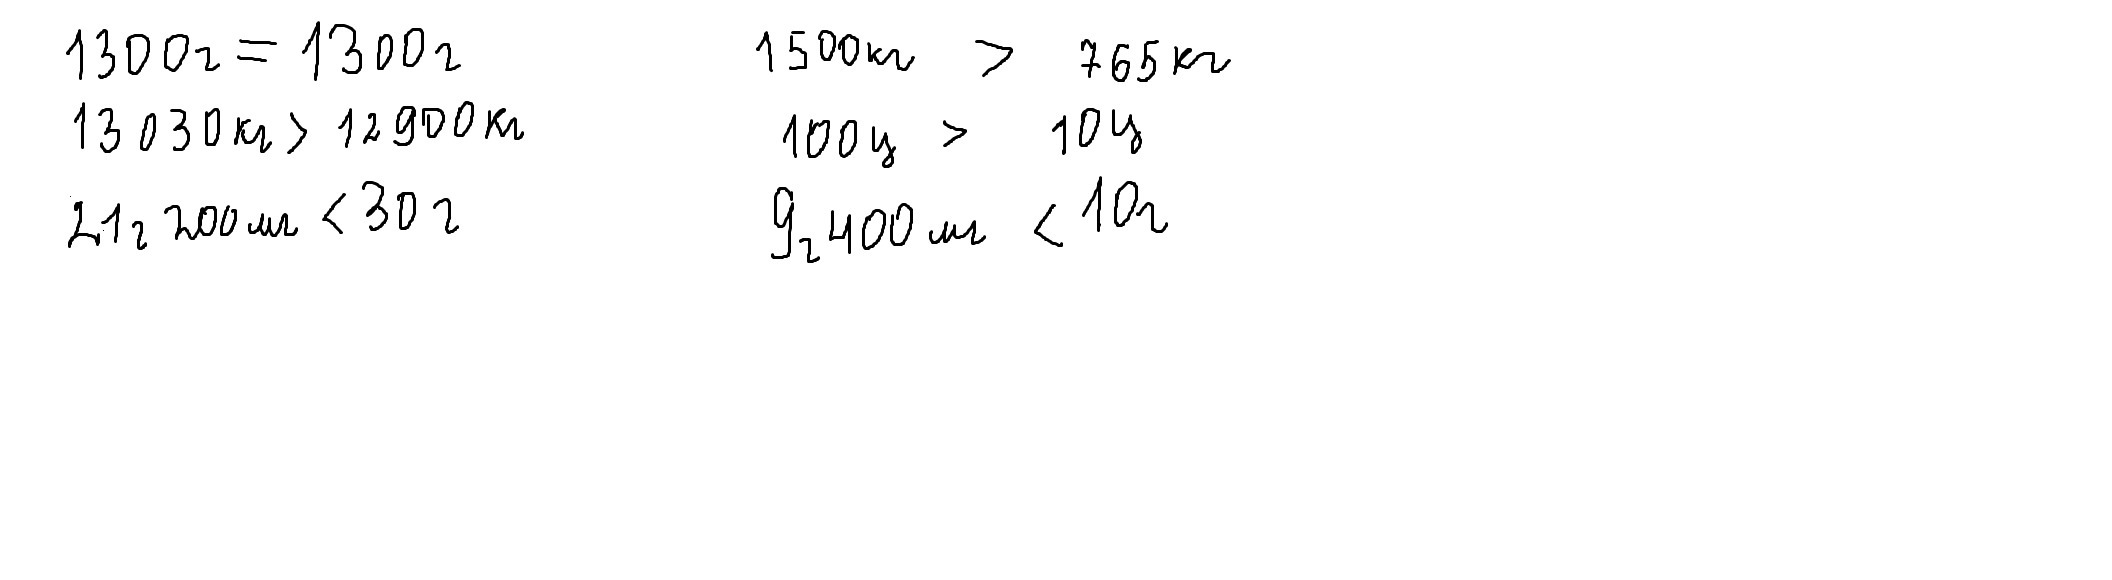 1300г = 1300г
13030кг > 12900кг
21г 200мг < 30г
1500кг > 765кг
100ц > 10ц
9г 400мг < 10г